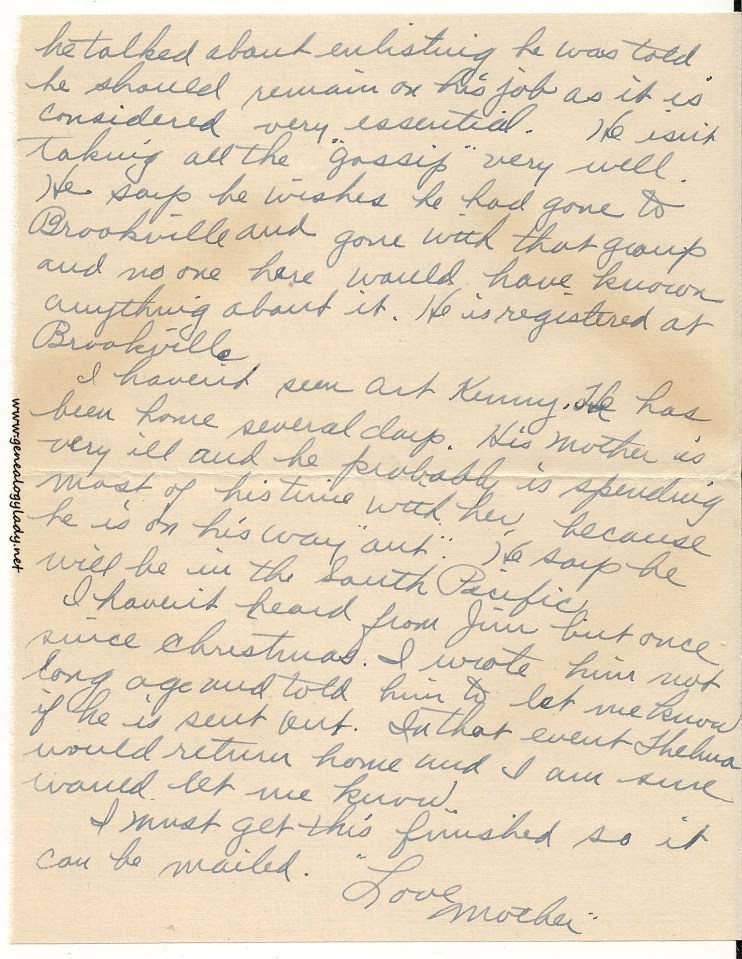 he talked about enlisting he was told
he should remain on his job as it is
considered very essential. He isn't
taking all the "gossip" very well.
He says he wishes he had gone to
Brookville and gone with that group
and no one here would have known
anything about it. He is registered at
Brookville
I haven't seen Art Kenny. He has
been home several days. His Mother is
very ill and he probably is spending
most of his time with her, because
he is on his way "out". He says he
will be in the South Pacific.
I haven't heard from Jim but once
since Christmas. I wrote him not
long ago and told him to let me know
if he is sent out. In that event Thelma
would return home and I am sure
would let me know.
I must get this finished so it
can be mailed.
"Love
Mother"
www.genealogylady.net